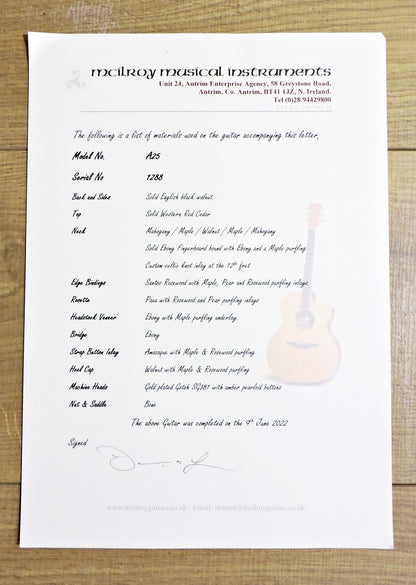 mcilroy musical instruments
Unit 24, Antrim Enterprise Agency, 58 Greystone Road,
Antrim, Co. Antrim, BT41 1JZ, N. Ireland.
Tel (0)28 94429800
The following is a list of materials used on the guitar accompanying this letter,
Model No. A25
Serial No 1288
Back and Sides Solid English black walnut.
Top Solid Western Red Cedar
Neck Mahogany / Maple / Walnut / Maple / Mahogany
Solid Ebony Fingerboard bound with Ebony and a Maple purfling
Custom celtic knot inlay at the 12th fret
Edge Bindings Santos Rosewood with Maple, Pear and Rosewood purfling inlays.
Rosette Paua with Rosewood and Pear purfling inlays
Headstock Veneer Ebony with Maple purfling underlay.
Bridge Ebony
Strap Button Inlay Amazaque with Maple & Rosewood purfling
Heel Cap Walnut with Maple & Rosewood purfling
Machine Heads Gold plated Gotoh SG381 with amber pearloid buttons
Nut & Saddle Bone
The above Guitar was completed on the 9th June 2022
Signed
www.mcilroyguitars.co.uk - Email: dermot@mcilroyguitars.co.uk